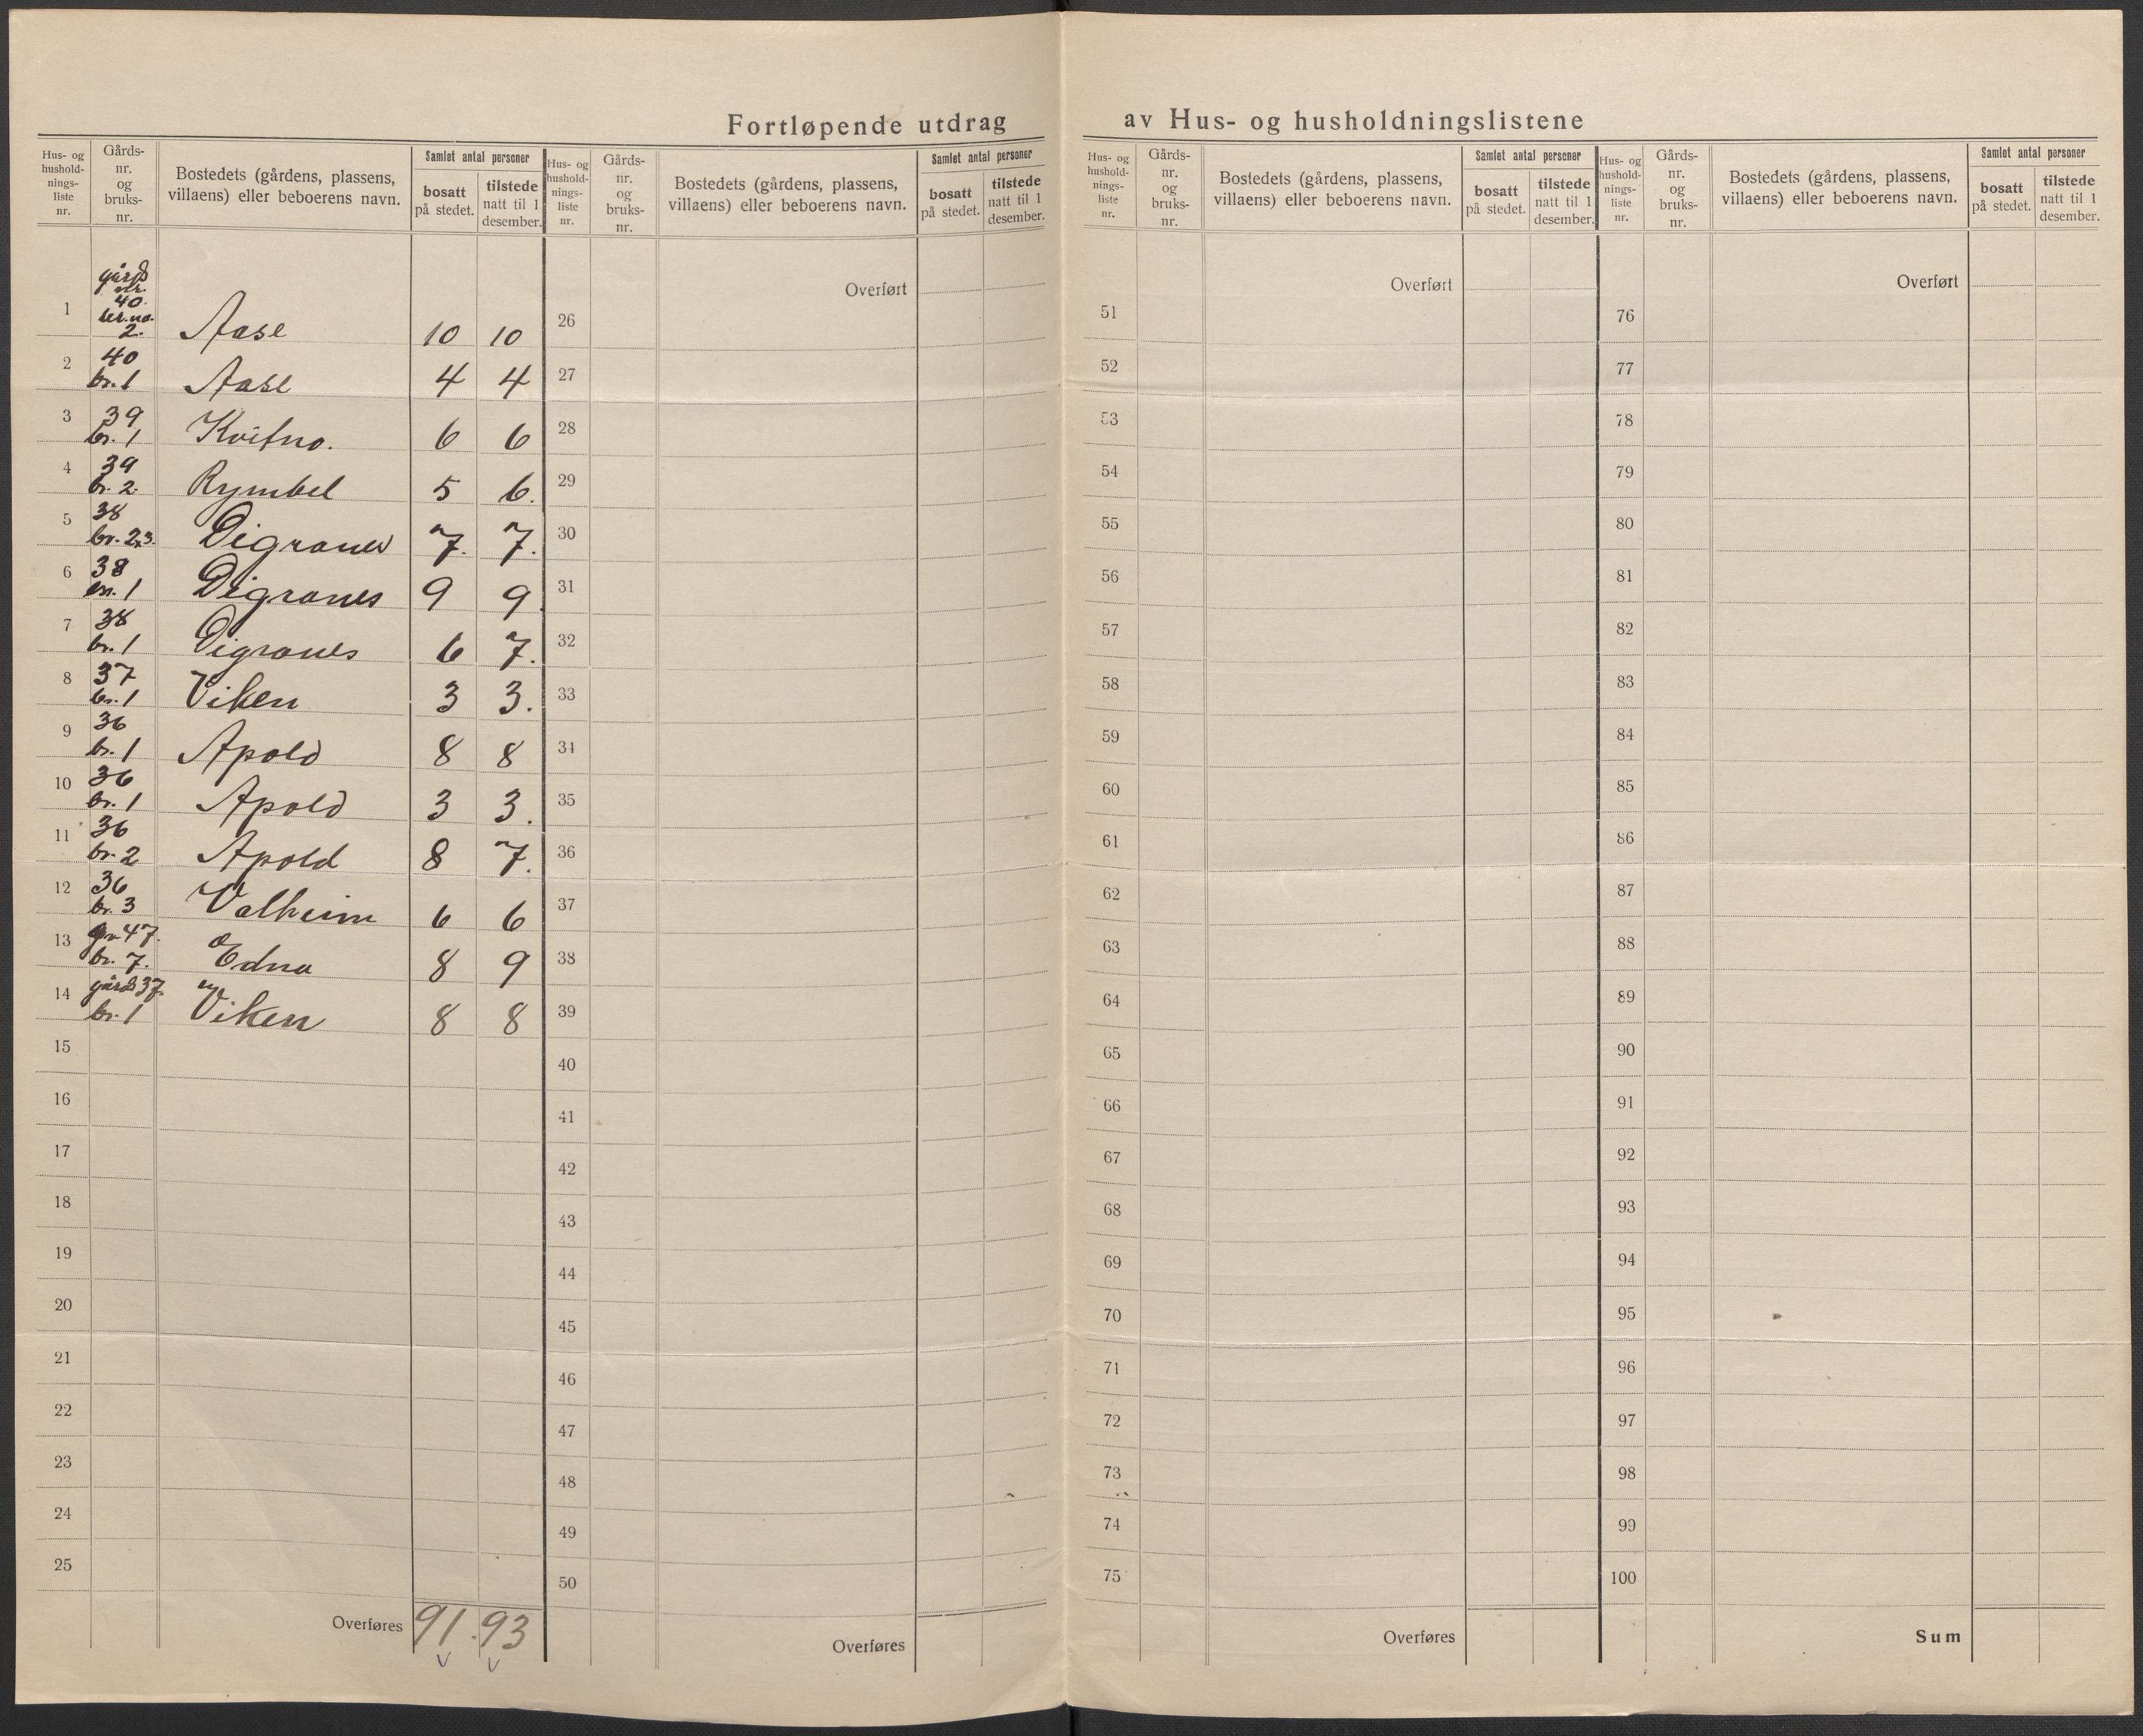 Fortløpende utdrag av Hus- og husholdningslistene
Hus- og hushold-nings-liste nr. Gårds-nr. og bruks-nr. Bostedets (gårdens, plassens, villaens) eller beboerens navn. Samlet antal personer bosatt på stedet. tilstede natt til 1 desember.
1 gårds nr. 40. 2. Aase 10 10
2 40 br. 1 Aase 4 4
3 39 br. 1 Kvitno. 6 6
4 39 br. 2 Rymbel 5 6.
5 38 br. 2,3. Digranes 7. 7.
6 38 br. 1 Digranes 9 9
7 38 br. 1 Digranes 6 7.
8 37 br. 1 Viken 3 3.
9 36 br. 1 Apold 8 8
10 36 br. 1 Apold 3 3.
11 36 br. 2 Apold 8 7.
12 36 br. 3 Valheim 6 6
13 gr 47. br. 7. Edna 8 9
14 gårds 37. br. 1 Viken 8 8
15
16
17
18
19
20
21
22
23
24
25
Overføres 91. 93
Hus- og hushold-nings-liste nr. Gårds-nr. og bruks-nr. Bostedets (gårdens, plassens, villaens) eller beboerens navn. Samlet antal personer bosatt på stedet. tilstede natt til 1 desember.
Overført
26
27
28
29
30
31
32
33
34
35
36
37
38
39
40
41
42
43
44
45
46
47
48
49
50
Overføres
Hus- og hushold-nings-liste nr. Gårds-nr. og bruks-nr. Bostedets (gårdens, plassens, villaens) eller beboerens navn. Samlet antal personer bosatt på stedet. tilstede natt til 1 desember.
Overført
51
52
53
54
55
56
57
58
59
60
61
62
63
64
65
66
67
68
69
70
71
72
73
74
75
Overføres
Hus- og hushold-nings-liste nr. Gårds-nr. og bruks-nr. Bostedets (gårdens, plassens, villaens) eller beboerens navn. Samlet antal personer bosatt på stedet. tilstede natt til 1 desember.
Overført
76
77
78
79
80
81
82
83
84
85
86
87
88
89
90
91
92
93
94
95
96
97
98
99
100
Sum